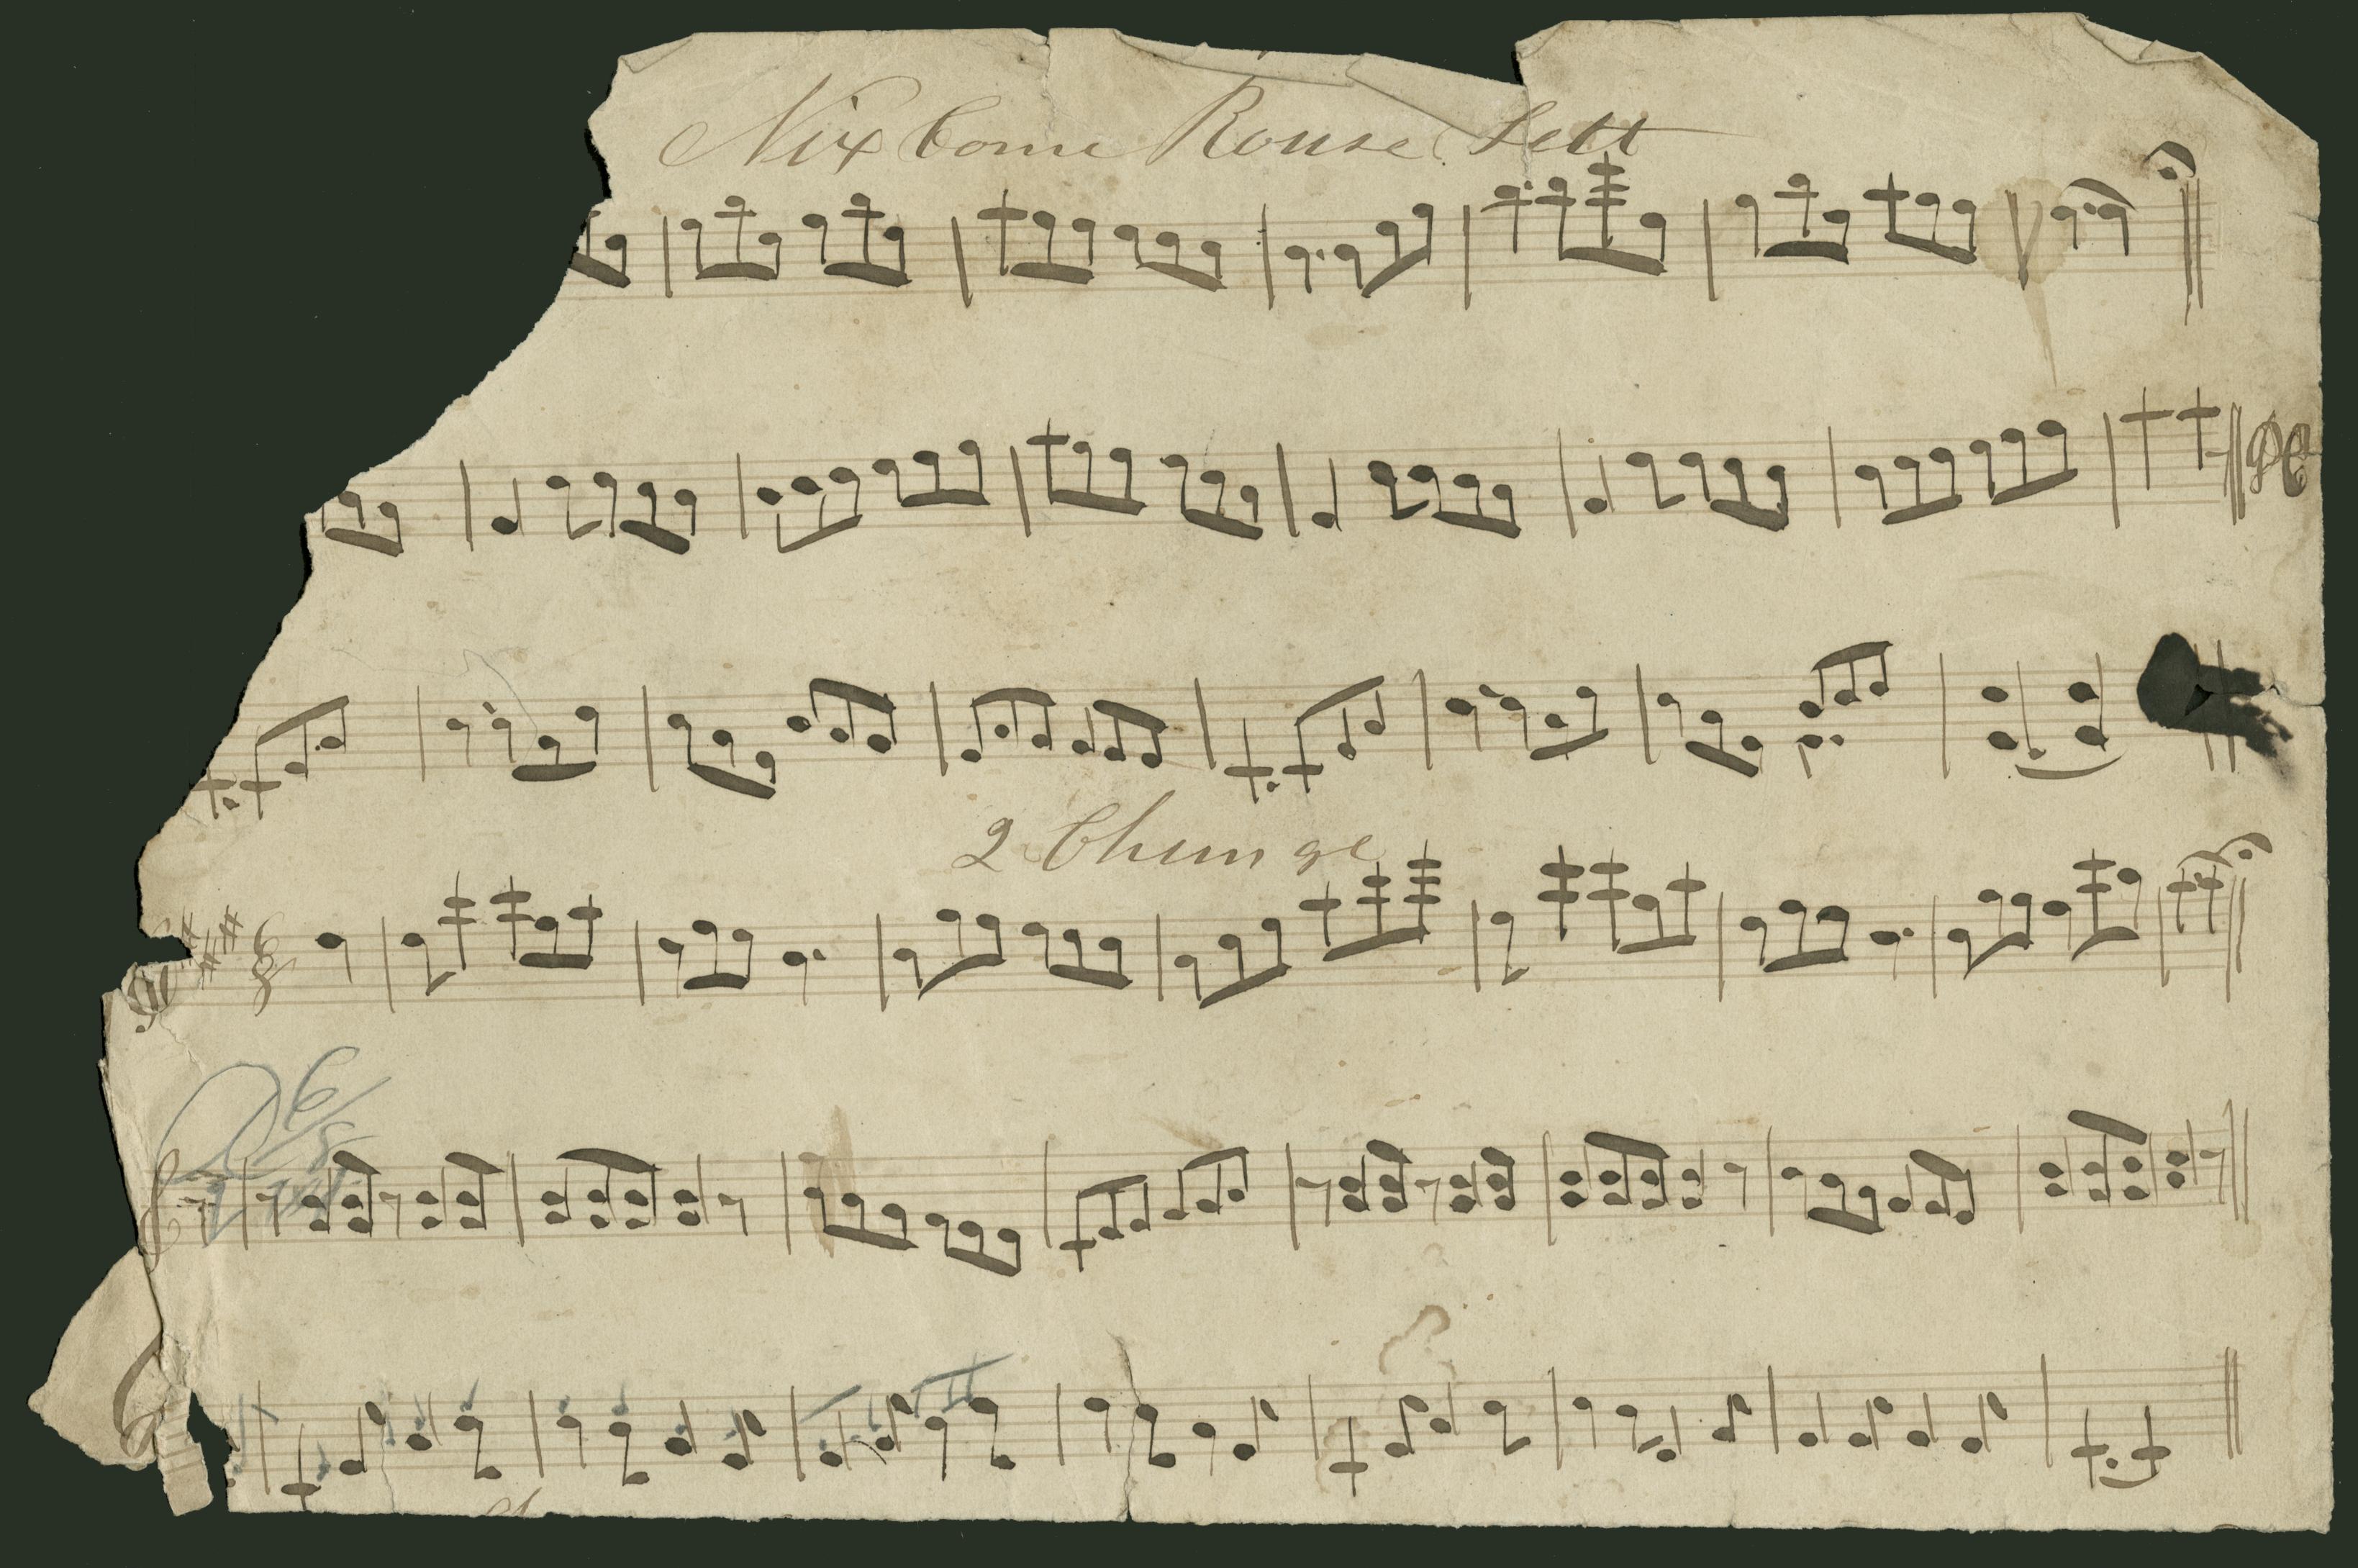 Nix Come Rouse Sett
DC
2 Change
6/8